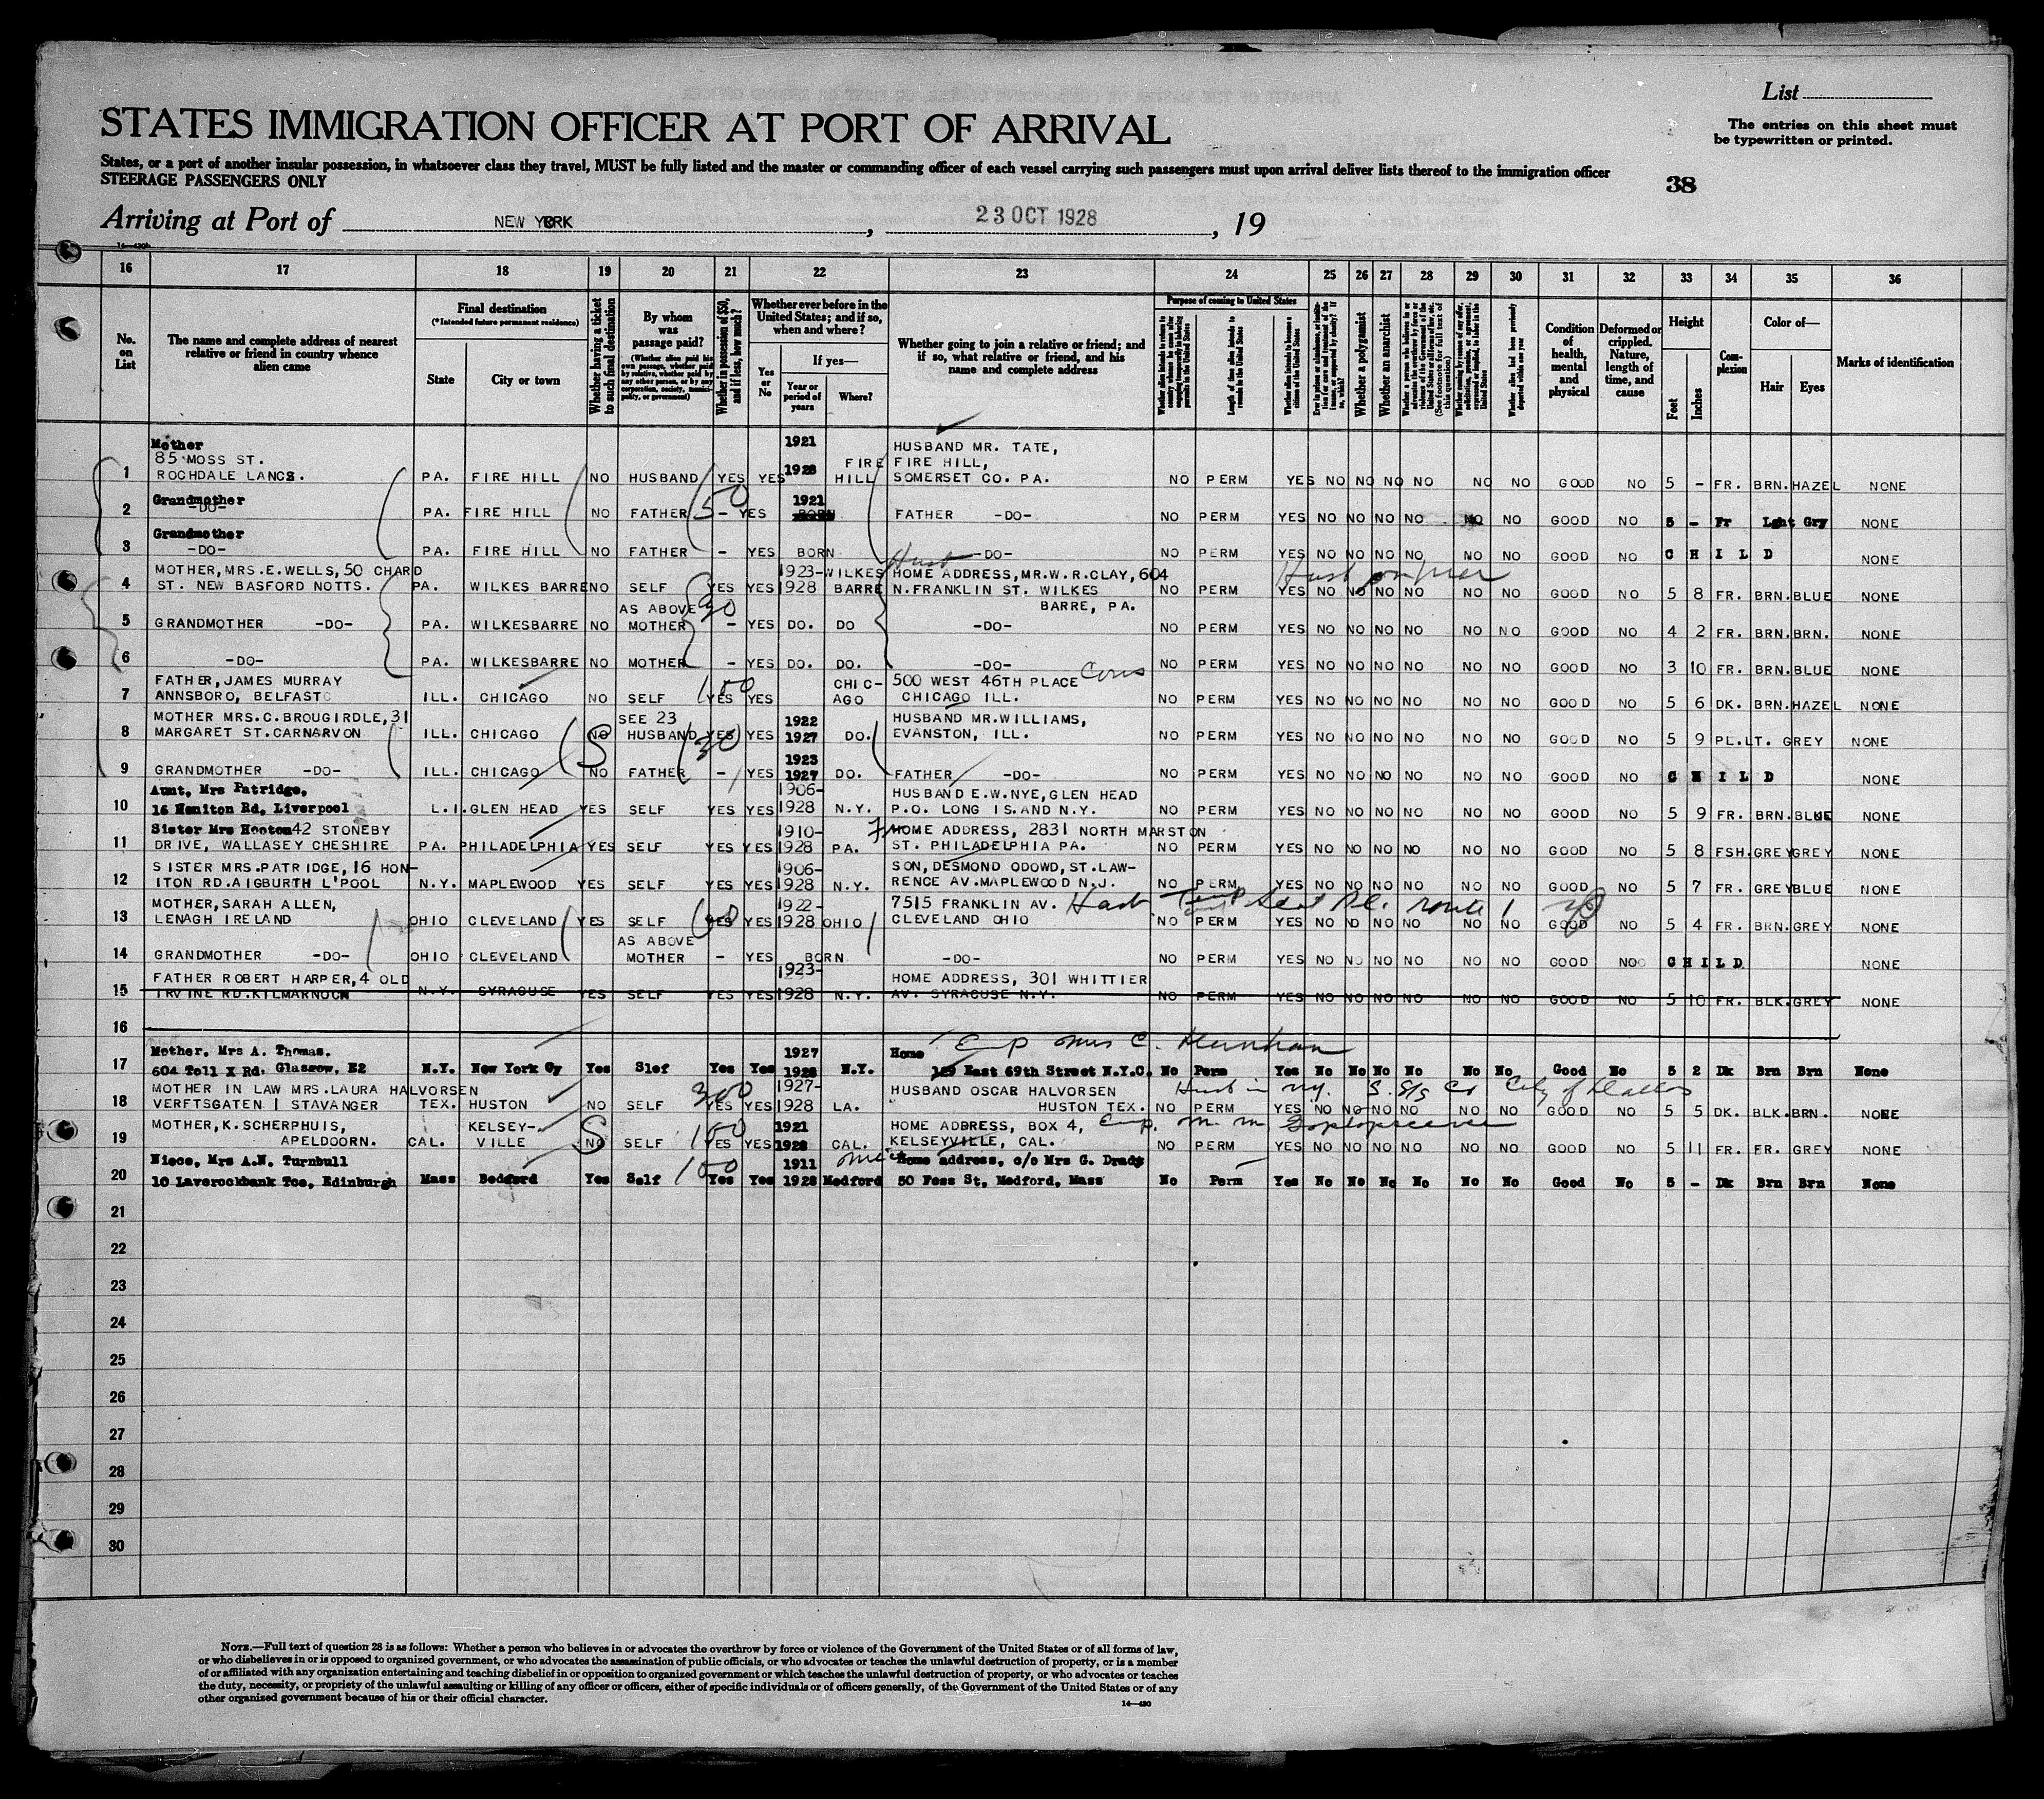 List
The entries on this sheet must
be typewritten or printed.
STATES IMMIGRATION OFFICER AT PORT OF ARRIVAL
States, or a port of another insular possession, in whatsoever class they travel, MUST be fully listed and the master or commanding officer of each vessel carrying such passengers must upon arrival deliver lists thereof to the immigration officer
STEERAGE PASSENGERS ONLY
38
Arriving at Port of NEW YORK, 23 OCT 1928, 19
16 17 18 19 20 21 22 23 24 25 26 27 28 29 30 31 32 33 34 35 36
No. on List
The name and complete address of nearest relative or friend in country whence alien came
Final destination
(*Intended future permanent residence)
State City or town
Whether having a ticket to such final destination
By whom was passage paid?
(Whether alien paid his own passage, whether paid by relative, whether paid by any other person, or by any corporation, society, municipality, or government)
Whether in possession of $50, and if less, how much?
Whether ever before in the United States; and if so, when and where?
Yes or No
If yes—
Year or period of years
Where?
Whether going to join a relative or friend; and if so, what relative or friend, and his name and complete address
Purpose of coming to United States
Length of time alien intends to remain in the United States
Whether alien intends to become a citizen of the United States
Whether a polygamist
Whether an anarchist
Condition of health, mental and physical
Deformed or crippled. Nature, length of time, and cause
Height
Feet Inches
Complexion
Color of—
Hair Eyes
Marks of identification
1 Mother 85 MOSS ST. ROCHDALE LANCS. PA. FIRE HILL NO HUSBAND YES YES 1921 1928 FIRE HILL HUSBAND MR. TATE, FIRE HILL, SOMERSET CO. PA. NO PERM YES NO NO NO NO NO NO GOOD NO 5 - FR. BRN. HAZEL NONE
2 Grandmother -DO- PA. FIRE HILL NO FATHER 50 - YES 1921 FATHER -DO- NO PERM YES NO NO NO NO NO NO GOOD NO 5 - Fr Lght Gry NONE
3 Grandmother -DO- PA. FIRE HILL NO FATHER - YES BORN -DO- NO PERM YES NO NO NO NO NO NO GOOD NO CHILD NONE
4 MOTHER, MRS.E.WELLS, 50 CHARD ST. NEW BASFORD NOTTS. PA. WILKES BARRE NO SELF YES YES 1923- 1928 WILKES BARRE Husb HOME ADDRESS, MR.W.R.CLAY, 604 N.FRANKLIN ST. WILKES BARRE, PA. NO PERM YES NO NO NO NO NO NO GOOD NO 5 8 FR. BRN. BLUE NONE
5 GRANDMOTHER -DO- PA. WILKESBARRE NO AS ABOVE MOTHER 30 - YES DO. DO -DO- NO PERM YES NO NO NO NO NO NO GOOD NO 4 2 FR. BRN. BRN. NONE
6 -DO- PA. WILKESBARRE NO MOTHER - YES DO. DO. -DO- NO PERM YES NO NO NO NO NO NO GOOD NO 3 10 FR. BRN. BLUE NONE
7 FATHER, JAMES MURRAY ANNSBORO, BELFAST ILL. CHICAGO NO SELF 150 YES YES CHIC-AGO 500 WEST 46TH PLACE CHICAGO ILL. Cous NO PERM YES NO NO NO NO NO NO GOOD NO 5 6 DK. BRN. HAZEL NONE
8 MOTHER MRS.C.BROUGIRDLE, 31 MARGARET ST.CARNARVON ILL. CHICAGO NO SEE 23 HUSBAND 30 YES YES 1922 1927 DO. HUSBAND MR.WILLIAMS, EVANSTON, ILL. NO PERM YES NO NO NO NO NO NO GOOD NO 5 9 PL. LT. GREY NONE
9 GRANDMOTHER -DO- ILL. CHICAGO NO FATHER - YES 1923 1927 DO. FATHER -DO- NO PERM YES NO NO NO NO NO NO GOOD NO CHILD NONE
10 Aunt, Mrs Patridge, 16 Honiton Rd, Liverpool L.I. GLEN HEAD YES SELF YES YES 1906- 1928 N.Y. HUSBAND E.W.NYE, GLEN HEAD P.O. LONG IS.AND N.Y. NO PERM YES NO NO NO NO NO NO GOOD NO 5 9 FR. BRN. BLUE NONE
11 Sister Mrs Hooton 42 STONEBY DRIVE, WALLASEY CHESHIRE PA. PHILADELPHIA YES SELF YES YES 1910- 1928 PA. HOME ADDRESS, 2831 NORTH MARSTON ST. PHILADELPHIA PA. NO PERM YES NO NO NO NO NO NO GOOD NO 5 8 FSH. GREY GREY NONE
12 SISTER MRS.PATRIDGE, 16 HON-ITON RD.AIGBURTH L'POOL N.Y. MAPLEWOOD YES SELF YES YES 1906- 1928 N.Y. SON, DESMOND ODOWD, ST.LAW-RENCE AV.MAPLEWOOD N.J. NO PERM YES NO NO NO NO NO NO GOOD NO 5 7 FR. GREY BLUE NONE
13 MOTHER, SARAH ALLEN, LENAGH IRELAND OHIO CLEVELAND YES SELF YES YES 1922- 1928 OHIO 7515 FRANKLIN AV. CLEVELAND OHIO NO PERM YES NO NO NO NO NO NO GOOD NO 5 4 FR. BRN. GREY NONE
14 GRANDMOTHER -DO- OHIO CLEVELAND AS ABOVE MOTHER - YES BORN -DO- NO PERM YES NO NO NO NO NO NO GOOD NO CHILD NONE
15 FATHER ROBERT HARPER, 4 OLD IRVINE RD.KILMARNOCK N.Y. SYRACUSE YES SELF YES YES 1923- 1928 N.Y. HOME ADDRESS, 301 WHITTIER AV. SYRACUSE N.Y. NO PERM YES NO NO NO NO NO NO GOOD NO 5 10 FR. BLK. GREY NONE
16
17 Mother. Mrs A. Thomas. 604 Toll X Rd. Glasgow, E2 N.Y. New York Cy Yes Slef Yes Yes 1927 1928 N.Y. Home 129 East 69th Street N.Y.C. No Perm Yes No No No No No No Good No 5 2 Dk Brn Brn None
18 MOTHER IN LAW MRS.LAURA HALVORSEN VERFTSGATEN 1 STAVANGER TEX. HUSTON NO SELF 300 YES YES 1927- 1928 LA. HUSBAND OSCAR HALVORSEN HUSTON TEX. Husb in N.Y. City of Dallas NO PERM YES NO NO NO NO NO NO GOOD NO 5 5 DK. BLK. BRN. NONE
19 MOTHER, K. SCHERPHUIS, APELDOORN. CAL. KELSEY-VILLE NO SELF 150 YES YES 1921 1928 CAL. HOME ADDRESS, BOX 4, KELSEYVILLE, CAL. NO PERM YES NO NO NO NO NO NO GOOD NO 5 11 FR. FR. GREY NONE
20 Niece, Mrs A.N. Turnbull 10 Laverockbank Tce, Edinburgh Mass Bedford Yes Self 100 Yes Yes 1911 1928 Medford Home address, c/o Mrs G. Drady 50 Foss St, Medford, Mass No Perm Yes No No No No No No Good No 5 - Dk Brn Brn None
21
22
23
24
25
26
27
28
29
30
NOTE.—Full text of question 28 is as follows: Whether a person who believes in or advocates the overthrow by force or violence of the Government of the United States or of all forms of law,
or who disbelieves in or is opposed to organized government, or who advocates the assassination of public officials, or who advocates or teaches the unlawful destruction of property, or is a member
of or affiliated with any organization entertaining and teaching disbelief in or opposition to organized government or which teaches the unlawful destruction of property, or who advocates or teaches
the duty, necessity, or propriety of the unlawful assaulting or killing of any officer or officers, either of specific individuals or of officers generally, of the Government of the United States or of any
other organized government because of his or their official character.
14—430